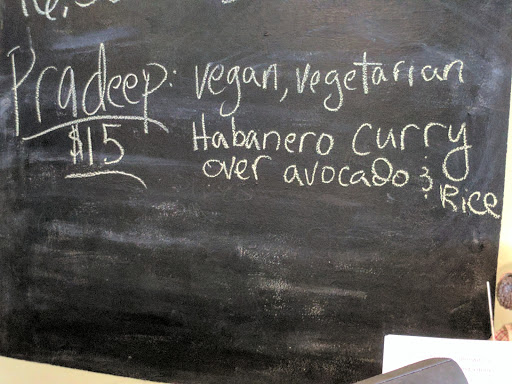 Pradeep: vegan, vegetarian
$15 Habanero curry
over avocado & Rice